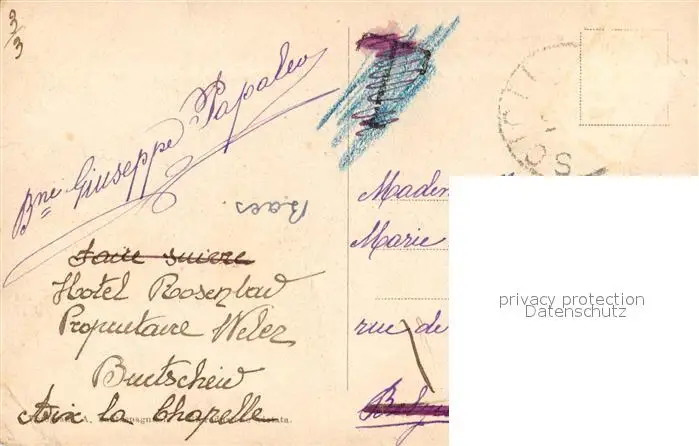 3/3
Bne Giuseppe Papaleo
Baes.
faire suivre
Hotel Rosenbad
Propriétaire Weler
Burtscheid
Aix la Chapelle
SCIATI
Madem
Marie
rue de
Belgi
privacy protection
Datenschutz